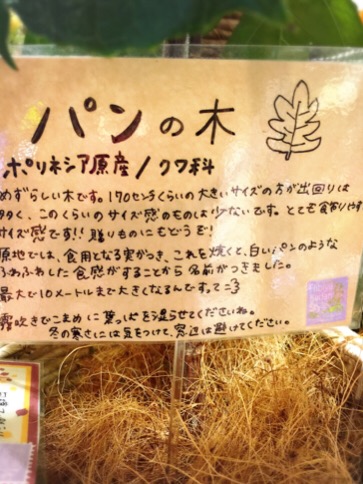 パンの木
ポリネシア原産/クワ科
めずらしい木です。170センチくらいの大きいサイズの方が出回りは
多く、このくらいのサイズ感のものは少ないです。とても飾りやす
サイズ感です!!贈りものにもどうぞ!
原地では、食用となる実がつき、これを焼くて、白いパンのような
ふわふわした食感がすることから名前がつきました。
最大で10メートルまで大きくなるんですって
霧吹きでこまめに葉っぱを湿らせてくださいね。
冬の寒さには気をつけて、窓辺は避けてください。